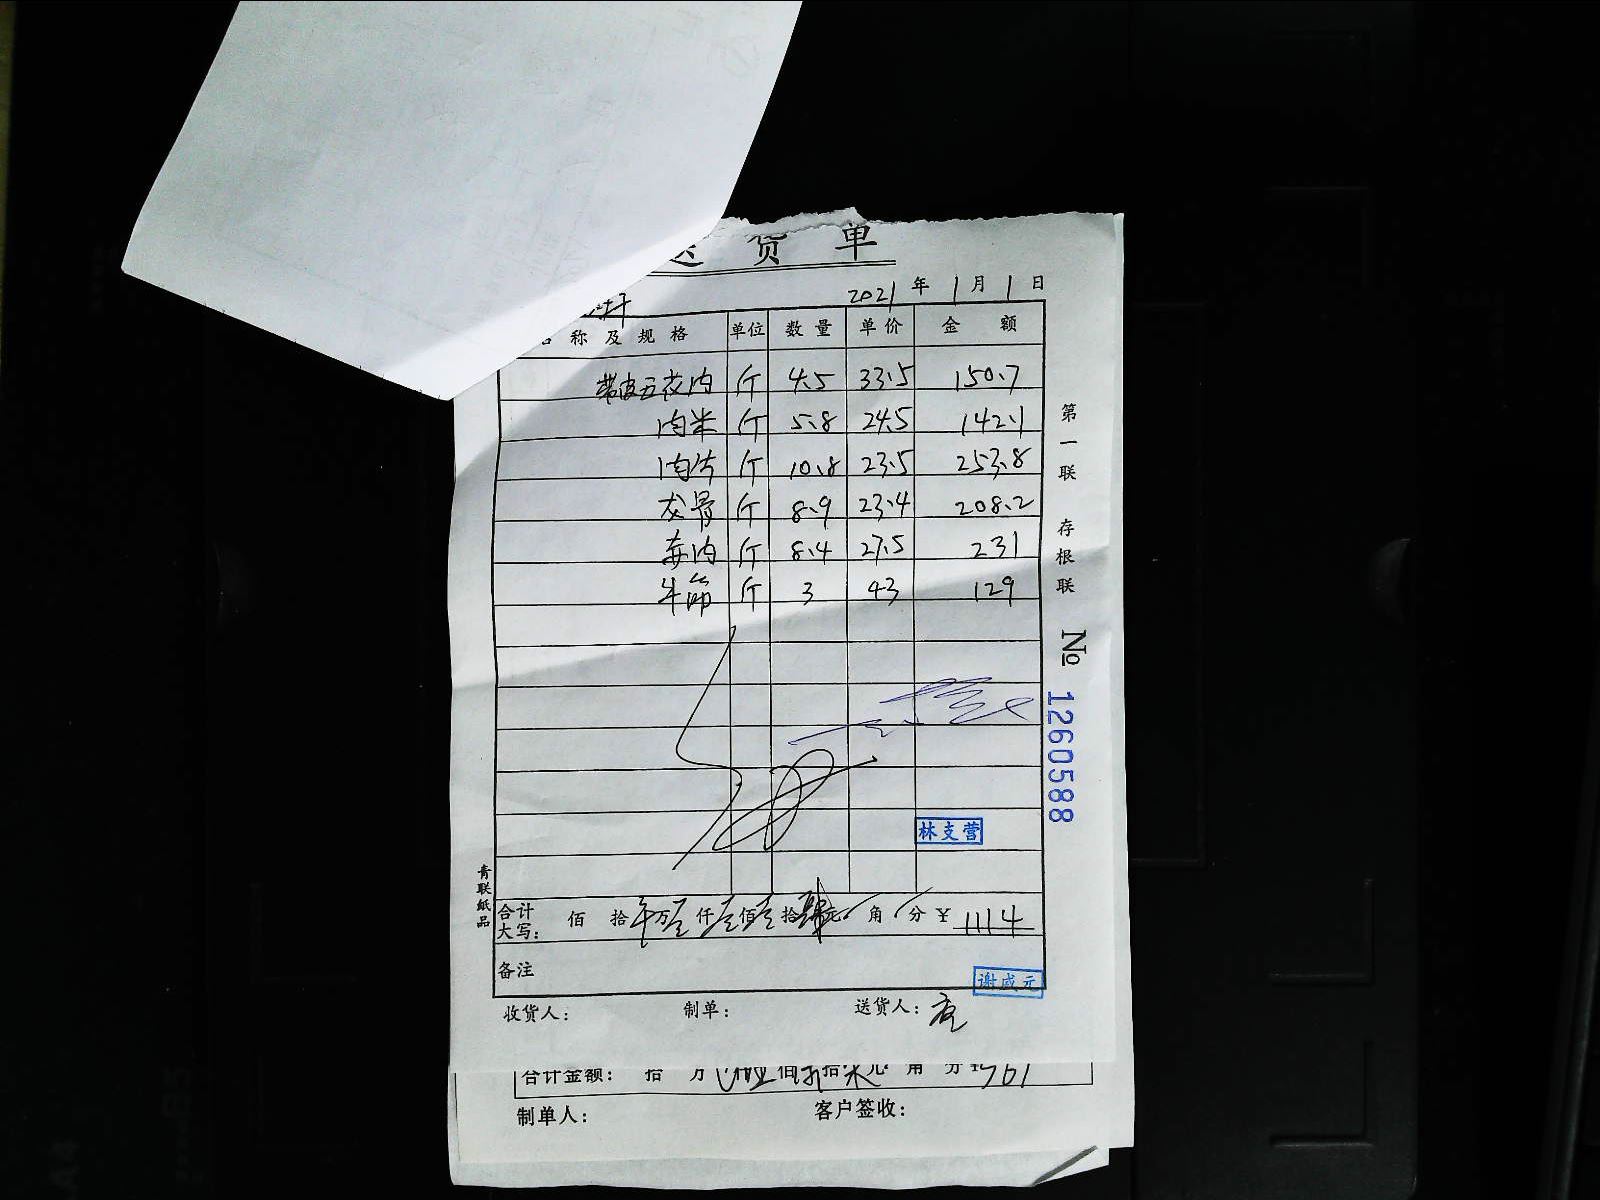 送货单
2021年1月1日
名称及规格 单位 数量 单价 金额
带皮五花肉 斤 4.5 33.5 150.7
肉米 斤 5.8 24.5 142.1
肉片 斤 10.8 23.5 253.8
龙骨 斤 8.9 23.4 208.2
斤 8.4 27.5 231
牛筋 斤 3 43 129
第一联 存根联
№ 1260588
林支营
青联纸品
合计大写: 佰 拾 万壹仟壹佰壹拾肆元 角 分 ¥ 1114
备注
谢成元
收货人: 制单: 送货人:
合计金额: 拾 万 佰 拾 元 角 分 761
制单人: 客户签收: